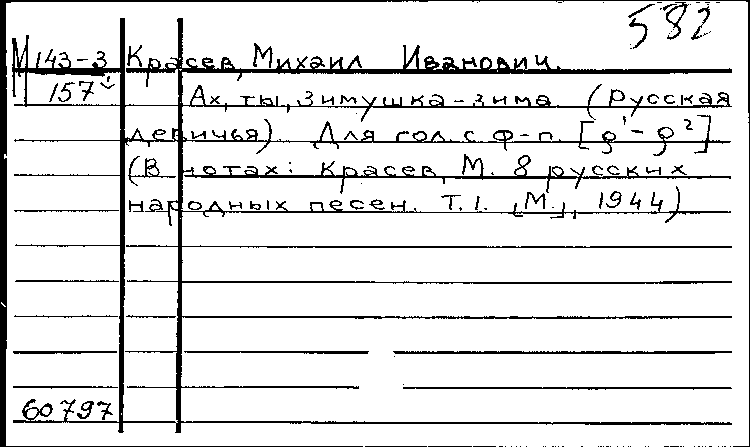 582
М 143-3 Красев, Михаил Иванович.
157 Ах, ты, зимушка-зима (Русская
девичья). Для гол. с ф-п. [g¹-g²]
(В нотах: Красев, М. 8 русских
народных песен. Т.1. [М.], 1944)
60797